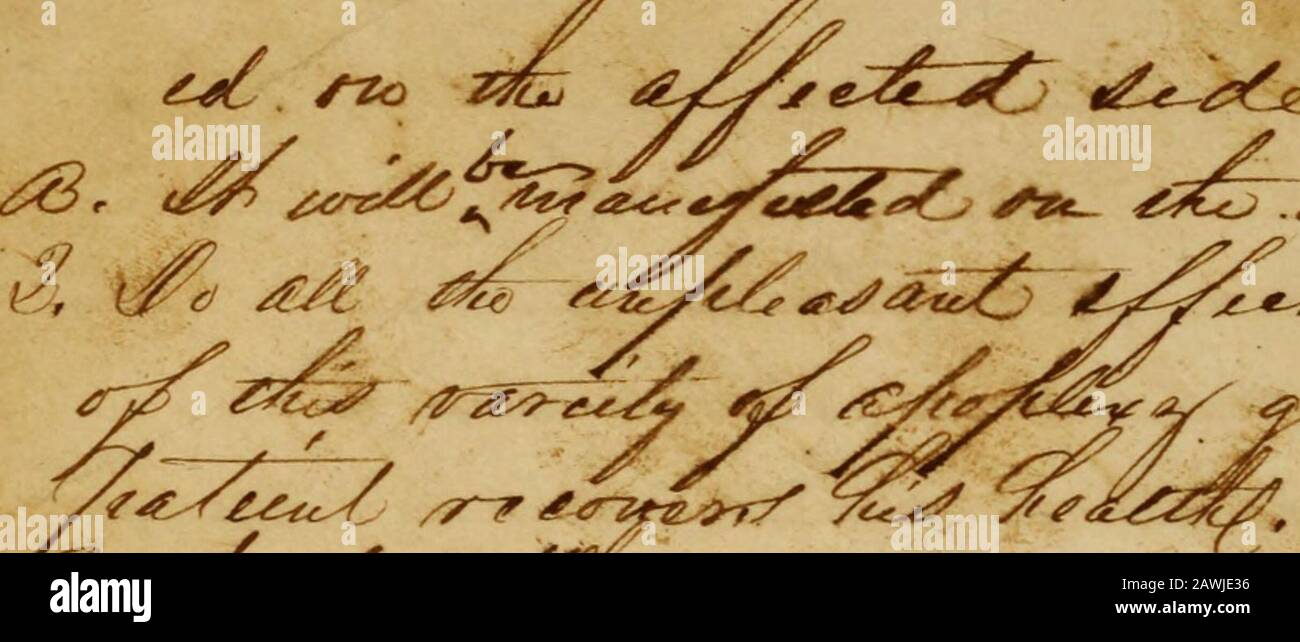 ed on the affected side
A. It will be manifested on the
Q. Do all the unpleasant effec
of this variety of apoplexy g
Patient recovers his health.
alamy
Image ID: 2AWJE36
www.alamy.com